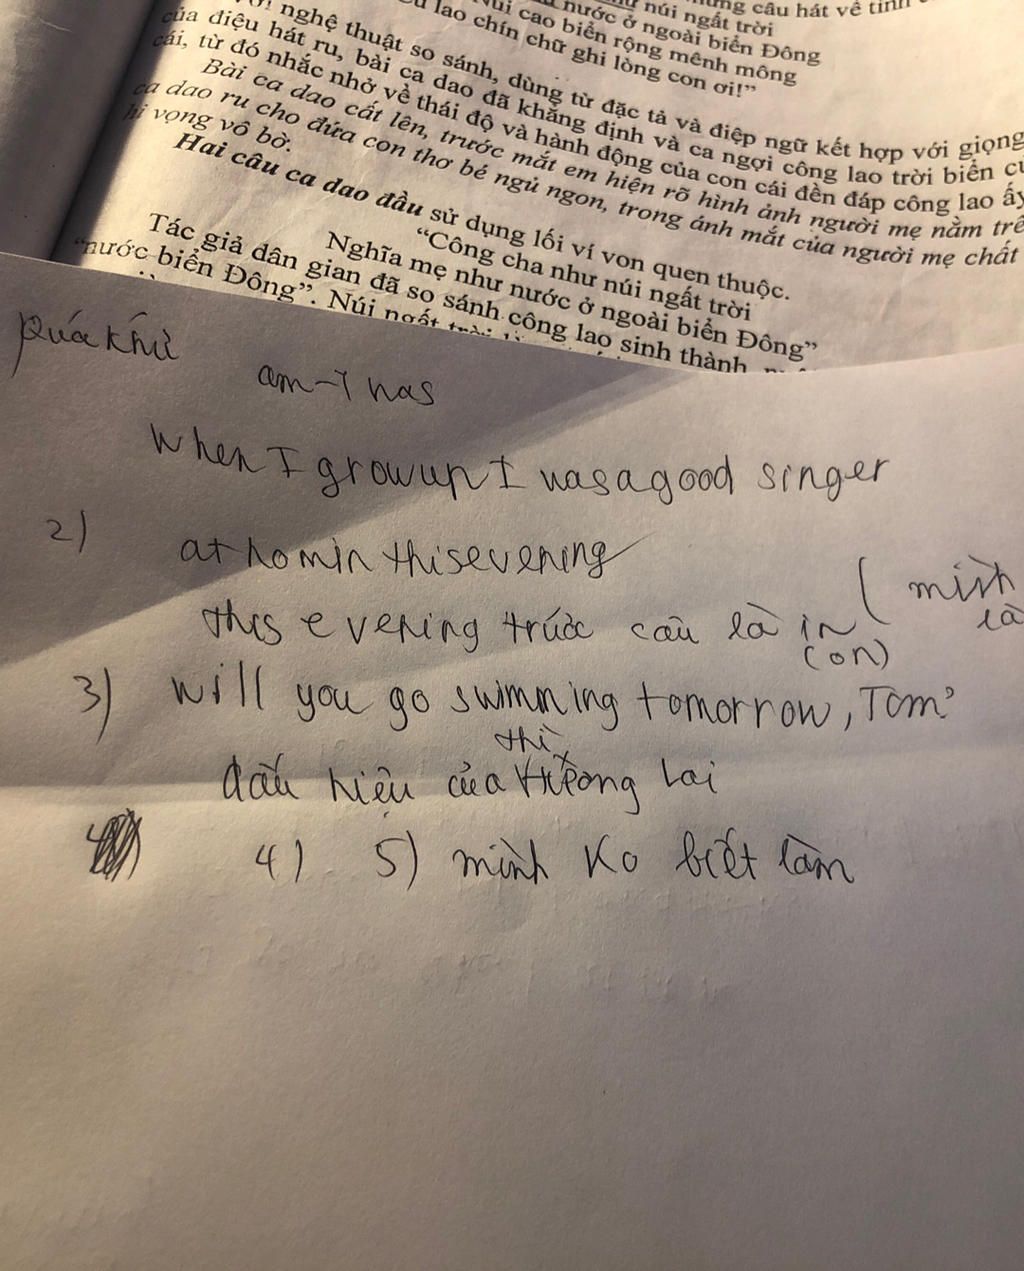 những câu hát về tình
núi ngất trời
nước ở ngoài biển Đông
Núi cao biển rộng mênh mông
lao chín chữ ghi lòng con ơi!”
nghệ thuật so sánh, dùng từ đặc tả và điệp ngữ kết hợp với giọng
của điệu hát ru, bài ca dao đã khẳng định và ca ngợi công lao trời biển
cái, từ đó nhắc nhở về thái độ và hành động của con cái đền đáp công lao ấy
Bài ca dao cất lên, trước mắt em hiện rõ hình ảnh người mẹ nằm trê
ca dao ru cho đứa con thơ bé ngủ ngon, trong ánh mắt của người mẹ chất
hi vọng vô bờ.
Hai câu ca dao đầu sử dụng lối ví von quen thuộc.
“Công cha như núi ngất trời
Nghĩa mẹ như nước ở ngoài biển Đông”
Tác giả dân gian đã so sánh công lao sinh thành
“nước biển Đông”. Núi ngất trời
Quá khứ
am-I was
When I grow up I was a good singer
2) at homin this evening
this evening trước câu là in (mình
(on) là
3) will you go swimming tomorrow, Tom?
thì
dấu hiệu của tương lai
4) 5) mình ko biết làm